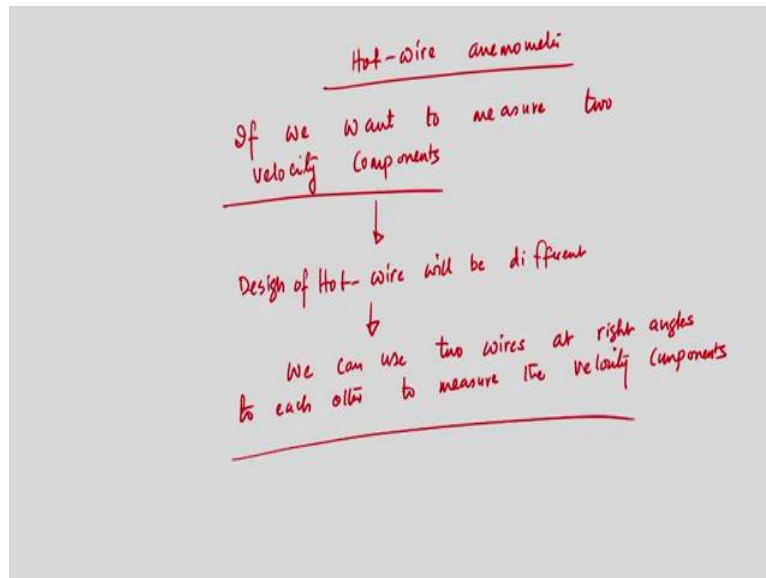 Hot-wire anemometi
If we want to measure two
velocity components
Design of Hot-wire will be different
We can use two wires at right angles
to each other to measure the velocity components